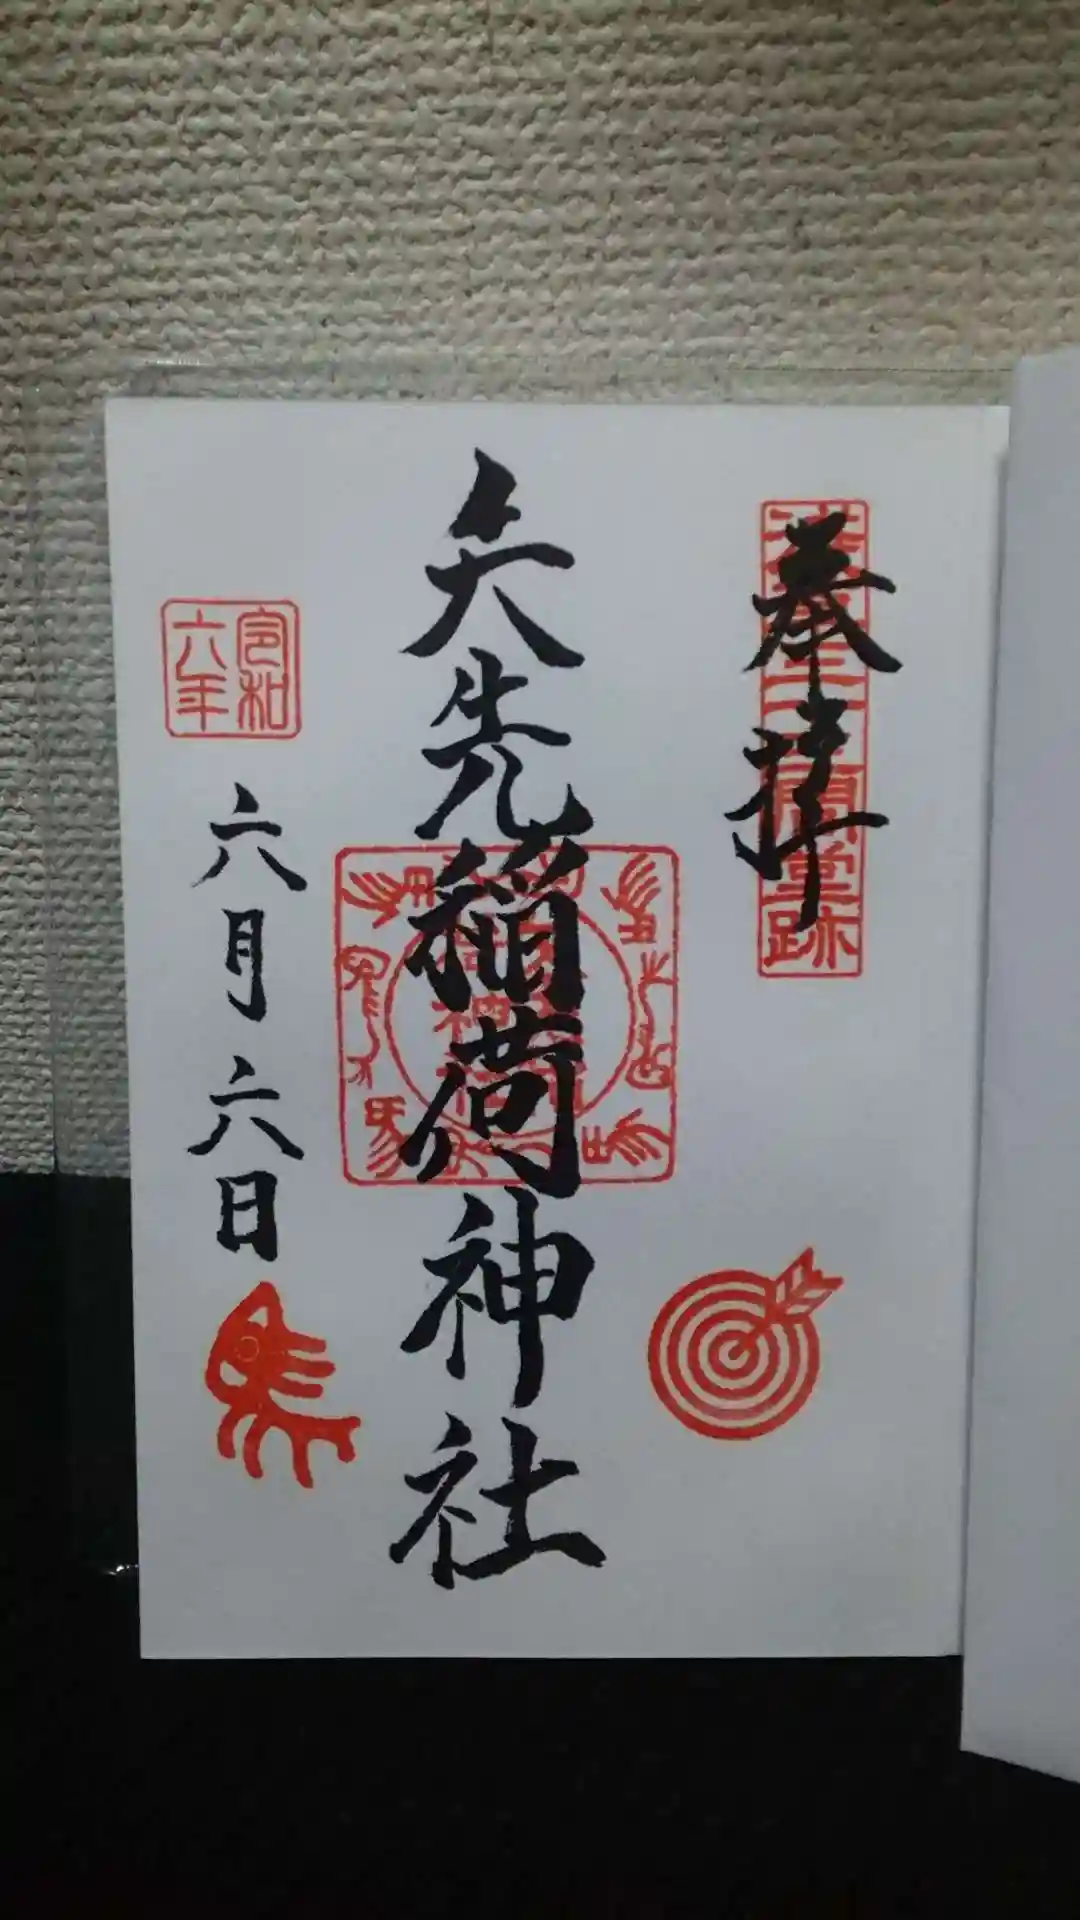 奉拝
浅草三十三間堂跡
矢先稲荷神社
令和
六年
六月六日
馬